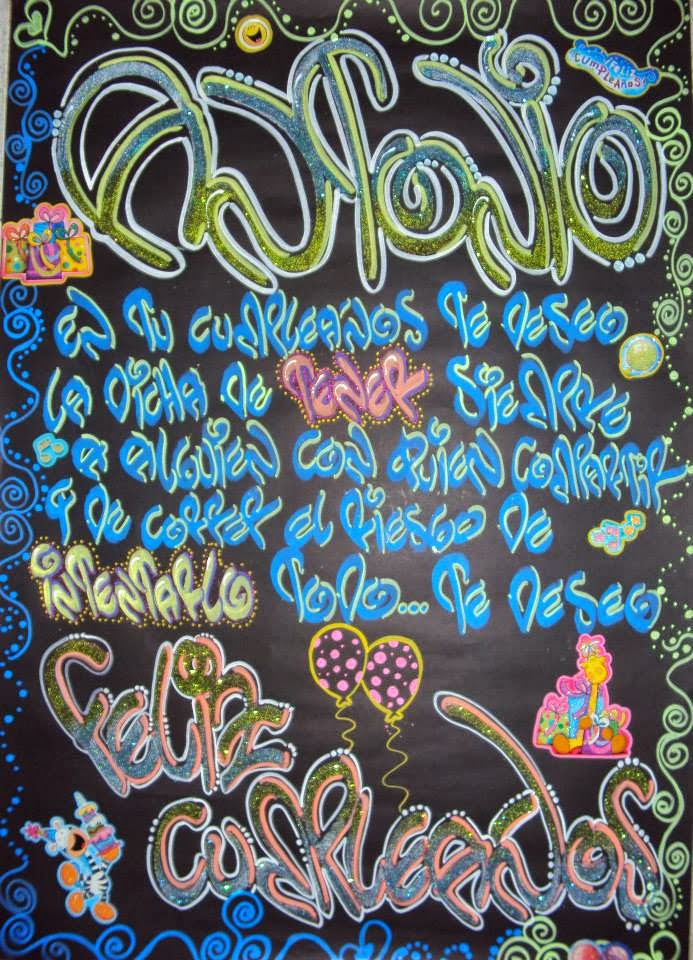 Antonio
Feliz
CUMPLEAÑOS
EN TU CUMPLEAÑOS TE DESEO
LA DICHA DE TENER SIEMPRE
A ALGUIEN CON QUIEN COMPARTIR
Y DE CORRER EL RIESGO DE
INTENTARLO TODO... TE DESEO
FELIZ
CUMPLEAÑOS